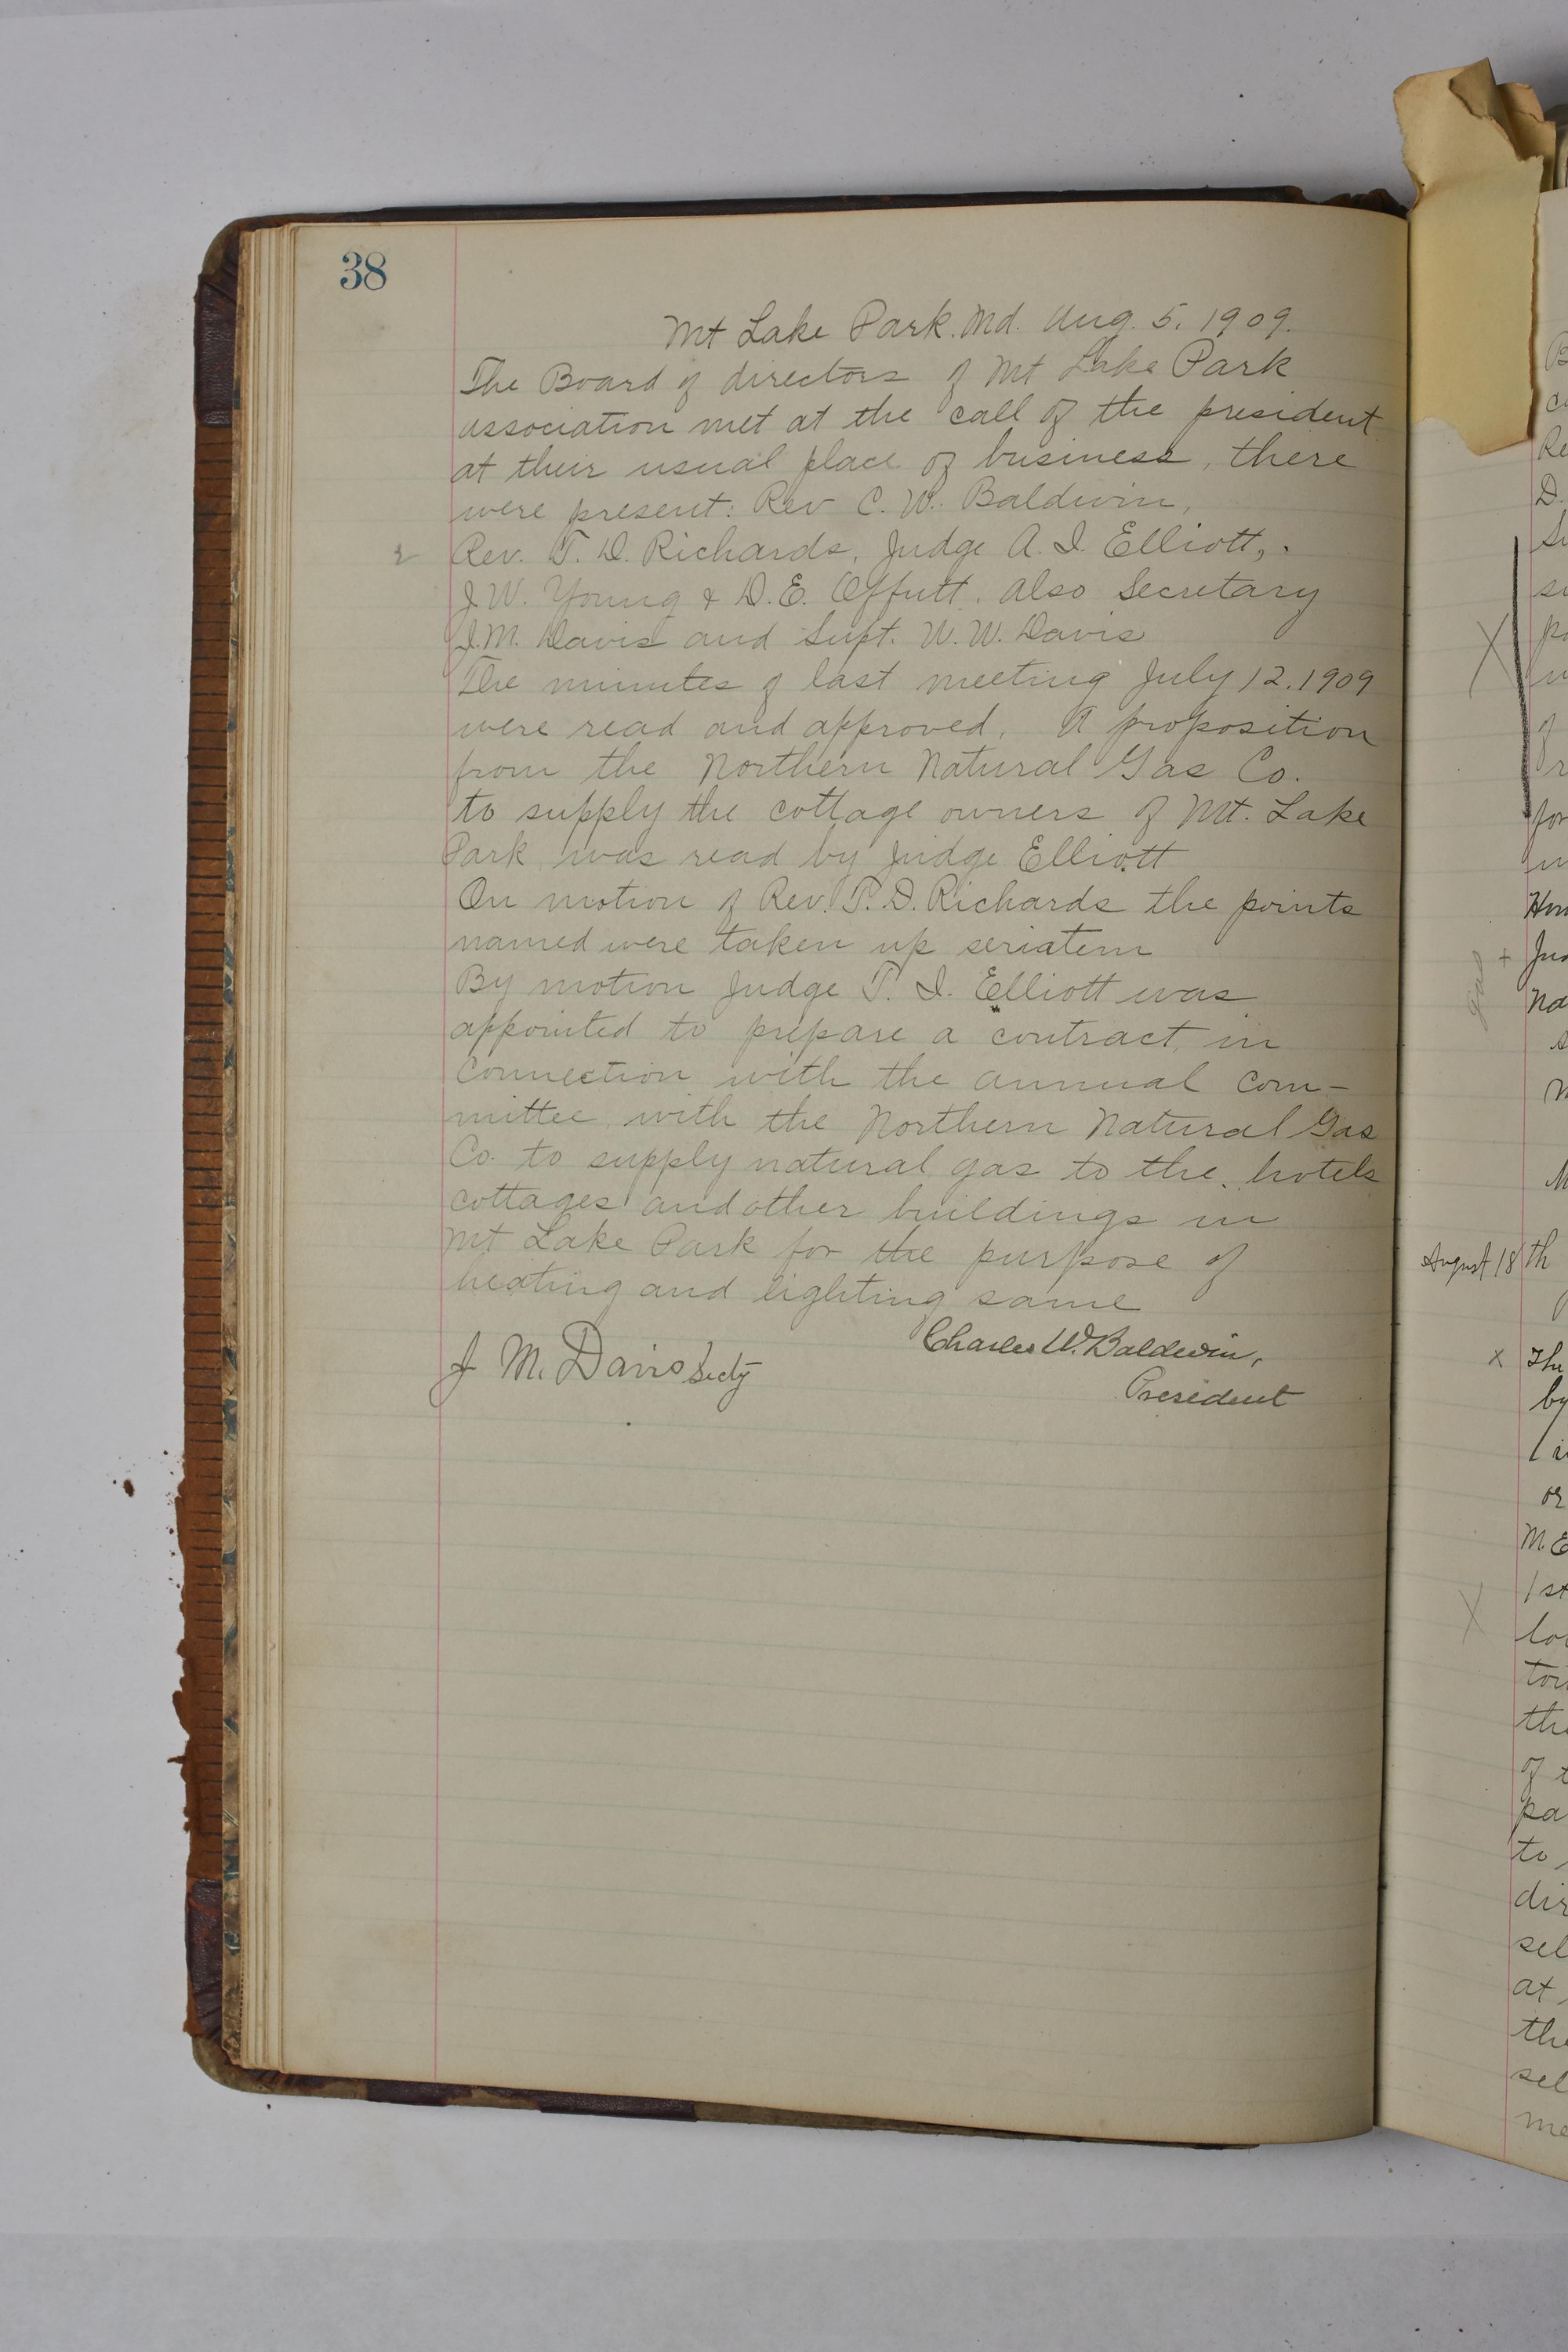 38
Mt Lake Park. Md. Aug. 5. 1909.
The Board of directors of Mt Lake Park
association met at the call of the president
at their usual place of business, there
were present: Rev C. W. Baldwin,
Rev. T. D. Richards, Judge A. I. Elliott,
J W. Young & D. E. Offutt. also Secretary
J. M. Davis and Supt. W. W. Davis
The minutes of last meeting July 12. 1909
were read and approved. A proposition
from the Northern Natural Gas Co.
to supply the cottage owners of Mt. Lake
Park was read by Judge Elliott
On motion of Rev. T. D. Richards the points
named were taken up seriatem
By motion Judge T. I. Elliott was
appointed to prepare a contract in
connection with the annual com-
mittee with the Northern Natural Gas
Co. to supply natural gas to the hotels
cottages and other buildings in
Mt Lake Park for the purpose of
heating and lighting same
J M. Davis Secty
Charles W. Baldwin,
President
August 18th